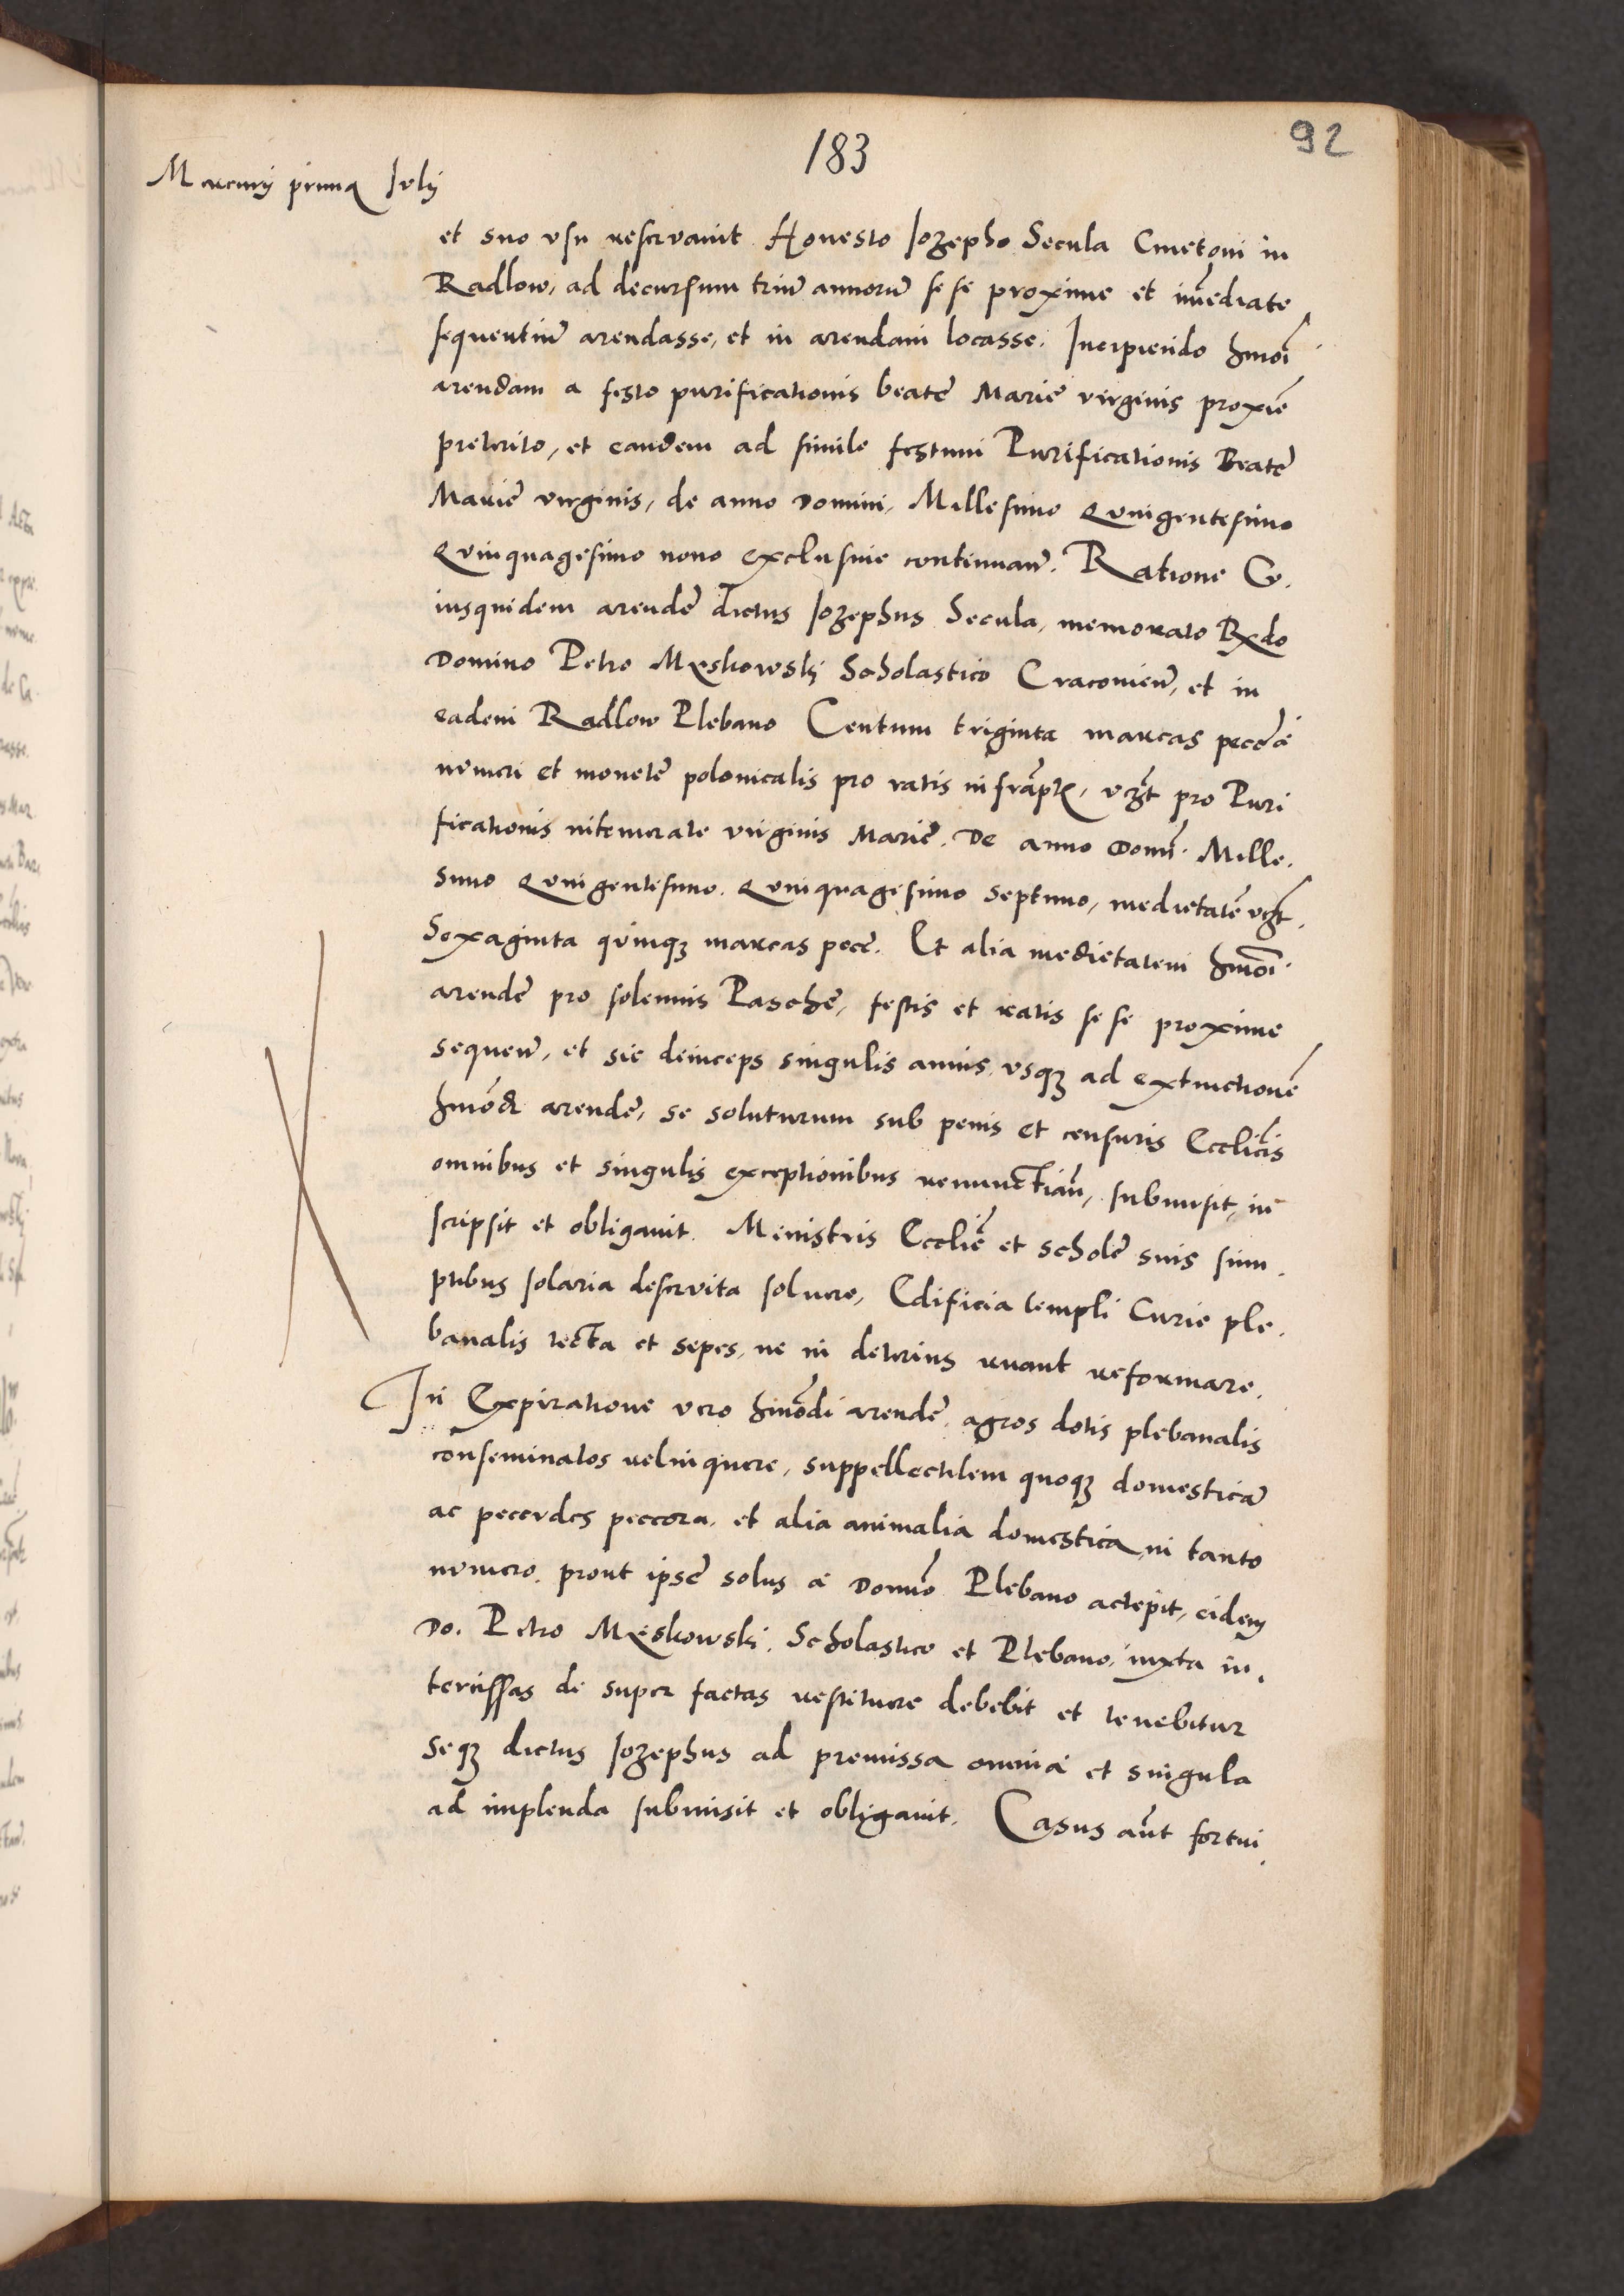 183
92
Mercurij prima Iulij
et suo vsu reservauit Honesto Jozepho Secula Cmetoni in
Radlow, ad decursum triū annorū se se proxime et im̄ediate
sequentiū arendasse, et in arendam locasse. Incipiendo hmōi
arendam a festo purificationis beatę Marię virginis proxīe
preterito, et eandem ad simile festum Purificationis Beatę
Marię virginis, de anno Domini, Millesimo Quingentesimo
Quinquagesimo nono exclusiue continuan̄. Ratione Cu.
iusquidem arendę dictus Jozephus Secula, memorato Rxdo
Domino Petro Mẏskowskj Scholastico Cracouien̄, et in
eadem Radlow Plebano Centum triginta marcas peccę
numeri et monetę polonicalis pro ratis infrāptꝭ, vcꝫt pro Puri
ficationis intemerate virginis Marię. De anno Domī. Mille.
simo Quingentesimo. Quinquagesimo septimo, medietatē vcꝫt.
Sexaginta quinqꝫ marcas pecc. Et alia medietatem hmōi.
arendę pro solemnis Paschę, festis et ratis se se proxime
sequen̄, et sic deinceps singulis annis, vsqꝫ ad extinctionē
hmōdi arendę, se soluturum sub penis et censuris Ecclīcis
omnibus et singulis exceptionibus renunctian̄, submisit, in
scripsit et obligauit. Ministris Ecclīę et scholę suis sum.
ptibus solaria deservita soluere, Edificia templi Curie ple.
banalis tecta et sepes, ne in deterius ruant reformare.
In Expiratione vero hmōdi arendę, agros dotis plebanalis
conseminatos relinquere, suppellectilem quoqꝫ domesticā
ac pecudes peccora, et alia animalia domestica, in tanto
numero, prout ipse solus a Domīo Plebano accepit, eidem
Do. Petro Mẏskowski. Scholastico et Plebano, iuxta in.
tercissas de super factas restituere debebit et tenebitur
Seqꝫ dictus Jozephus ad premissa omnia et singula
ad implenda submisit et obligauit. Casus aūt fortui.